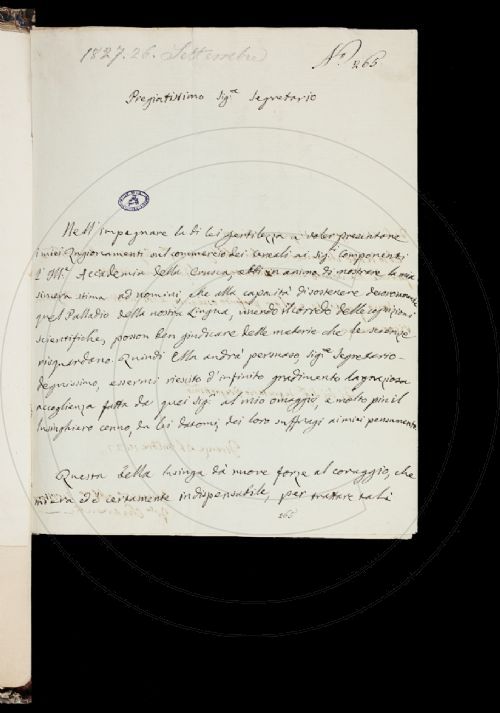 1827. 26. Settembre
N.° 265
Pregiatissimo Sig.r Segretario
Nell' impegnare la di lei gentilezza a voler presentare
i miei Ragionamenti sul commercio dei Cereali ai Sig.i Componenti
l' Ill.e Accademia della Crusca, ebbi in animo di mostrare la mia
sincera stima ad uomini, che alla capacità di sostenere decorosamente
quel Palladio della nostra Lingua, unendo il corredo delle cognizioni
scientifiche, posson ben giudicare delle materie che le scienze
risguardano. Quindi Ella andrà persuaso, Sig.r Segretario
degnissimo, essermi riescito d' infinito gradimento la graziosa
accoglienza fatta da quei Sig.i al mio omaggio, e molto più il
lusinghiero cenno, da lei datomi, dei loro suffragi ai miei pensamenti.
Questa bella lusinga dà nuove forze al coraggio, che
mi era ed è certamente indispensabile, per trattare tali
265